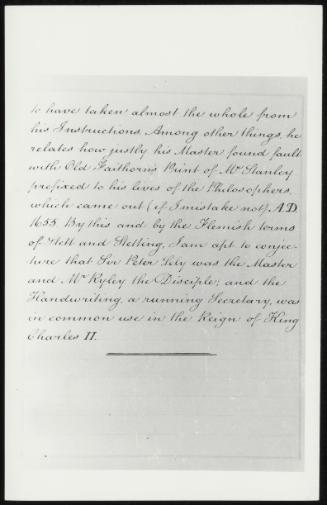 to have taken almost the whole from
his Instructions. Among other things, he
relates how justly his Master found fault
with Old Faithorn's Print of Mr. Stanley
prefixed to his lives of the Philosophers,
which came out (if I mistake not), A.D.
1655. By this and by the Flemish terms
of and Sletting, I am apt to conjec-
ture that Sir Peter Lely was the Master
and Mr. Ryley the Disciple; and the
Handwriting, a running Secretary, was
in common use in the Reign of King
Charles II.